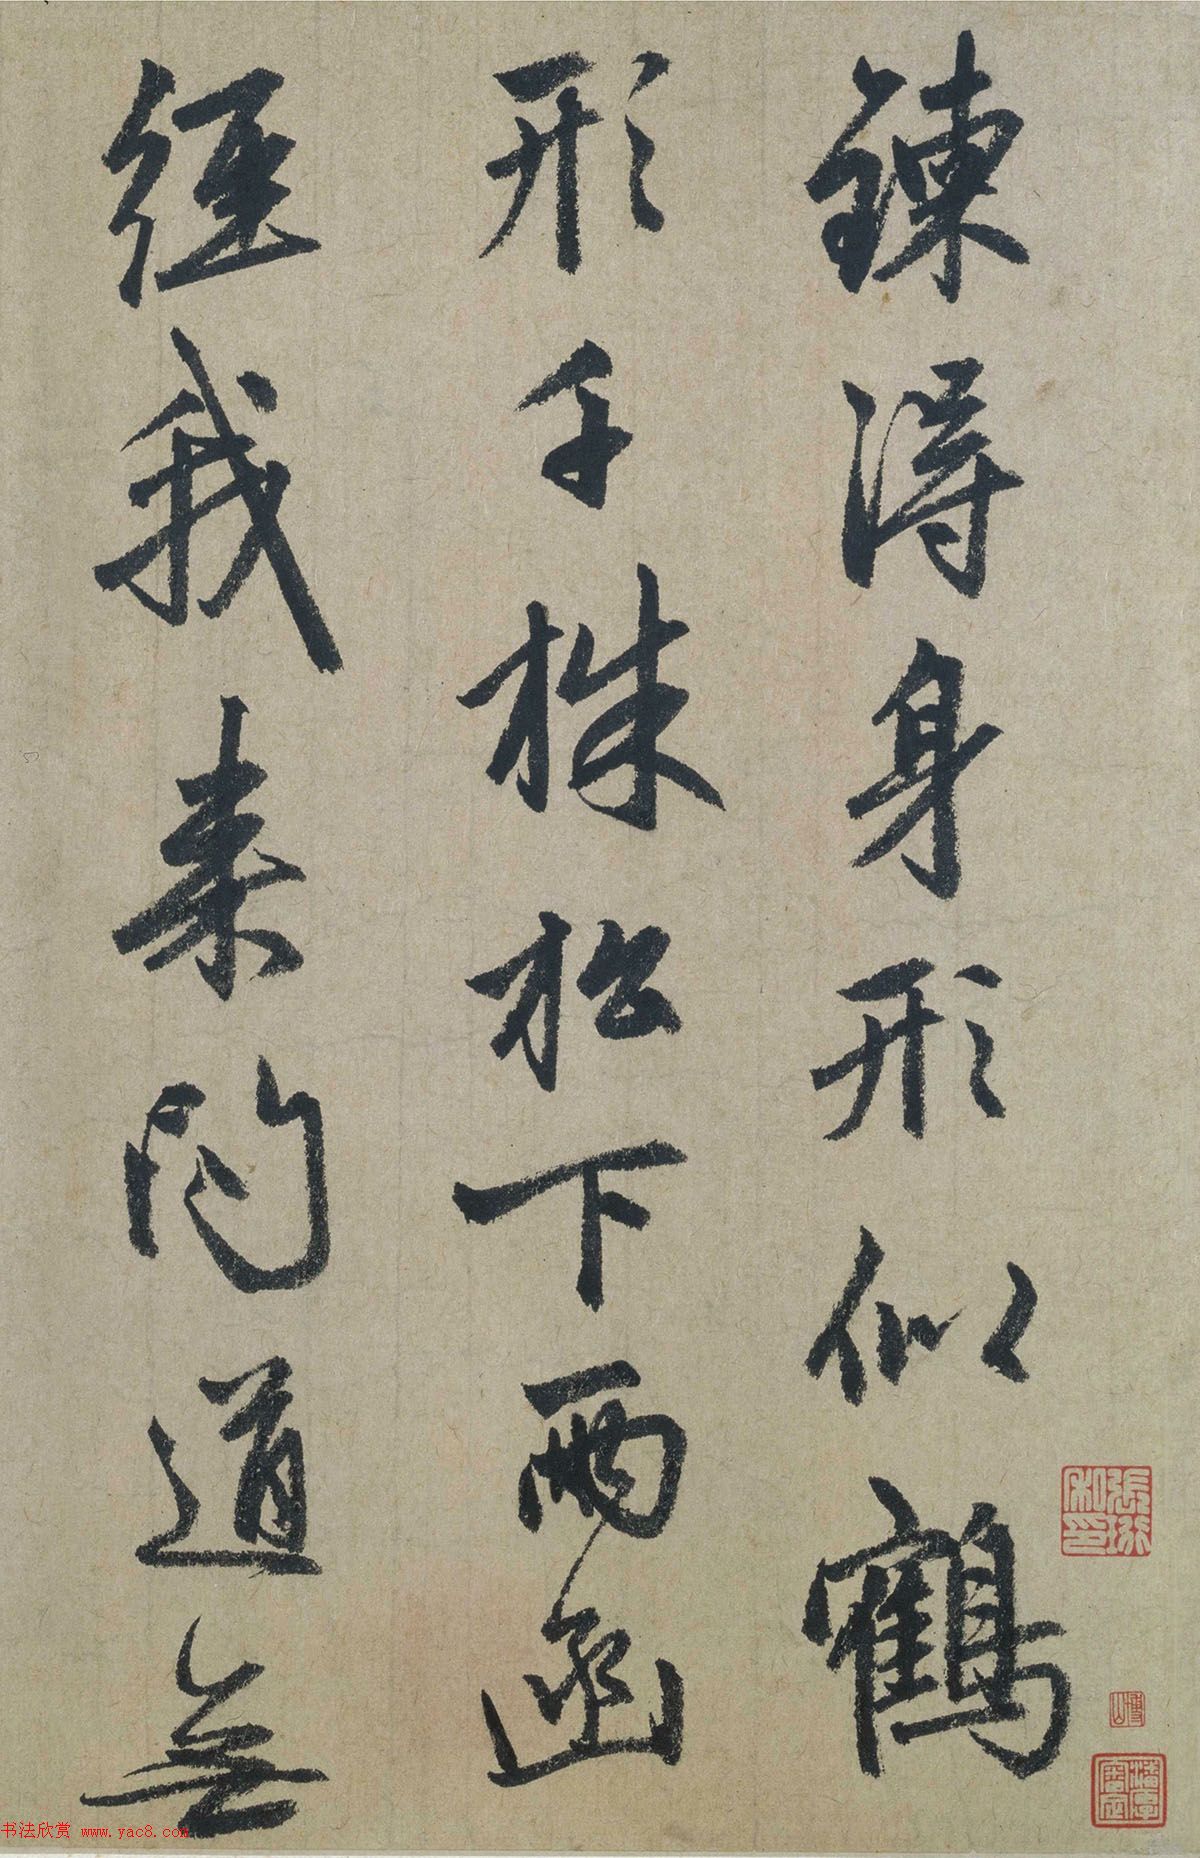 鍊得身形似鶴
形千株松下兩函
經我来問道無
張珩私印
書法欣赏 www.yac8.com